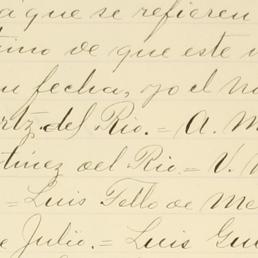 á que se refieren
tino de que este
fecha, yo el
rtz del Rio.= A. M.
tinez del Rio = V.
= Luis Tello de Me
e Julio.= Luis Gu